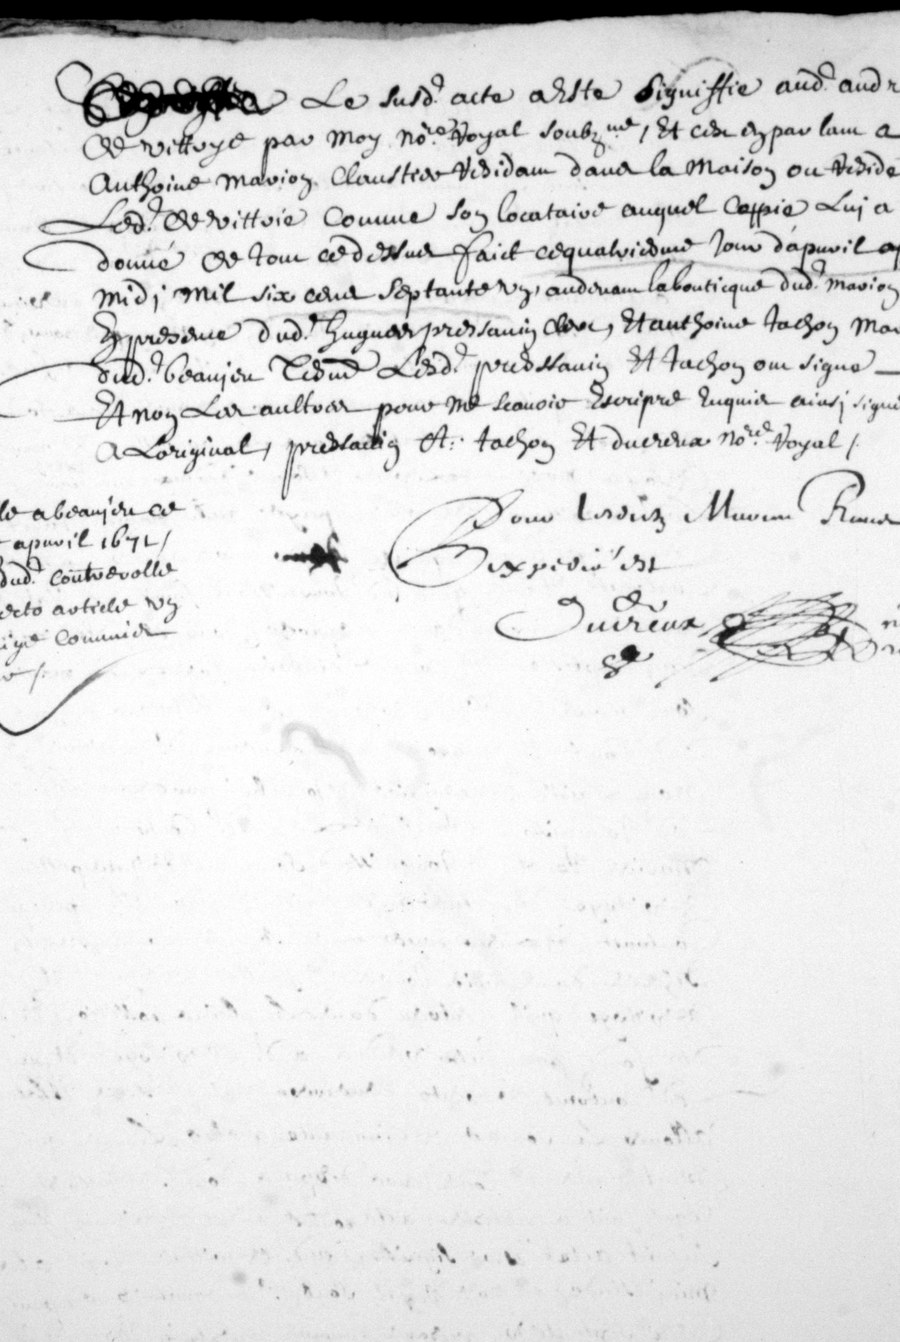 Le susd.t acte a este Signiffie aud.t andr
de vittrye par Moy no.re Royal soubz.ne, Et ce en parlant a
Anthoine Marion Claustier Residant dans la Maison ou Reside
Led.t de vittrie Comme son locataire auquel Coppie Luj a
donné de tout cedessus faict cequatriesme Jour d'apvril ap
midj Mil six cens septante un, audevant la bouticque dud.t Marion
En presence dud.t hugues pressavin clerc, Et anthoine tachon Mar
dud.t beaujeu Lesd.t pressavin Et tachon ont signe
Et non Les aultres pour ne scavoir Escripre Enquis ainsj signé
A Loriginal, pressavin A. tachon Et ducreux no.re Royal,
le a beaujeu ce
apvril 1671,
dud.t controrolle
article un
Commis
Pour Marion
Expedié est
Ducreux